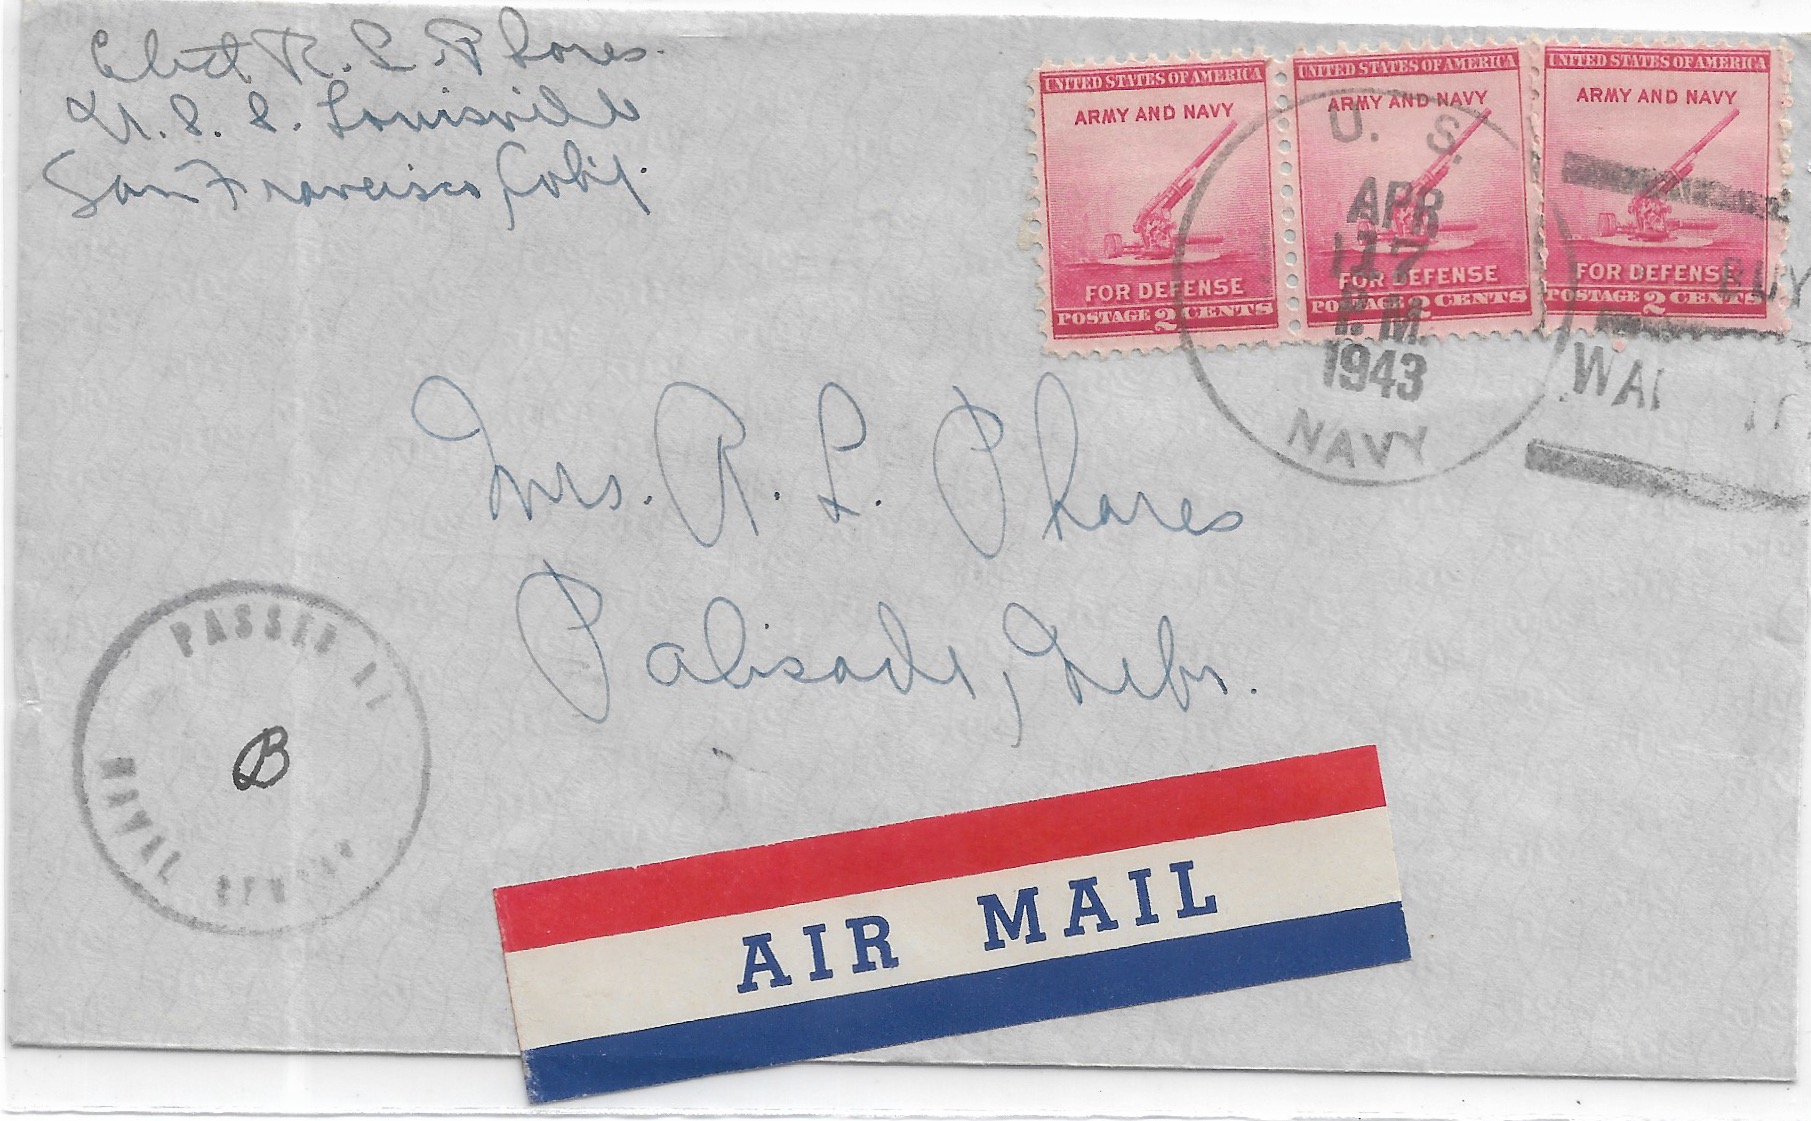 R. L. Phares.
U. S. S. Louisville
San Francisco, Calif.
UNITED STATES OF AMERICA
ARMY AND NAVY
FOR DEFENSE
POSTAGE 2 CENTS
UNITED STATES OF AMERICA
ARMY AND NAVY
FOR DEFENSE
POSTAGE 2 CENTS
UNITED STATES OF AMERICA
ARMY AND NAVY
FOR DEFENSE
POSTAGE 2 CENTS
U. S.
APR
17
P. M.
1943
NAVY
BUY
Mrs. R. L. Phares
Palisade, Nebr.
PASSED
B
NAVAL
AIR MAIL